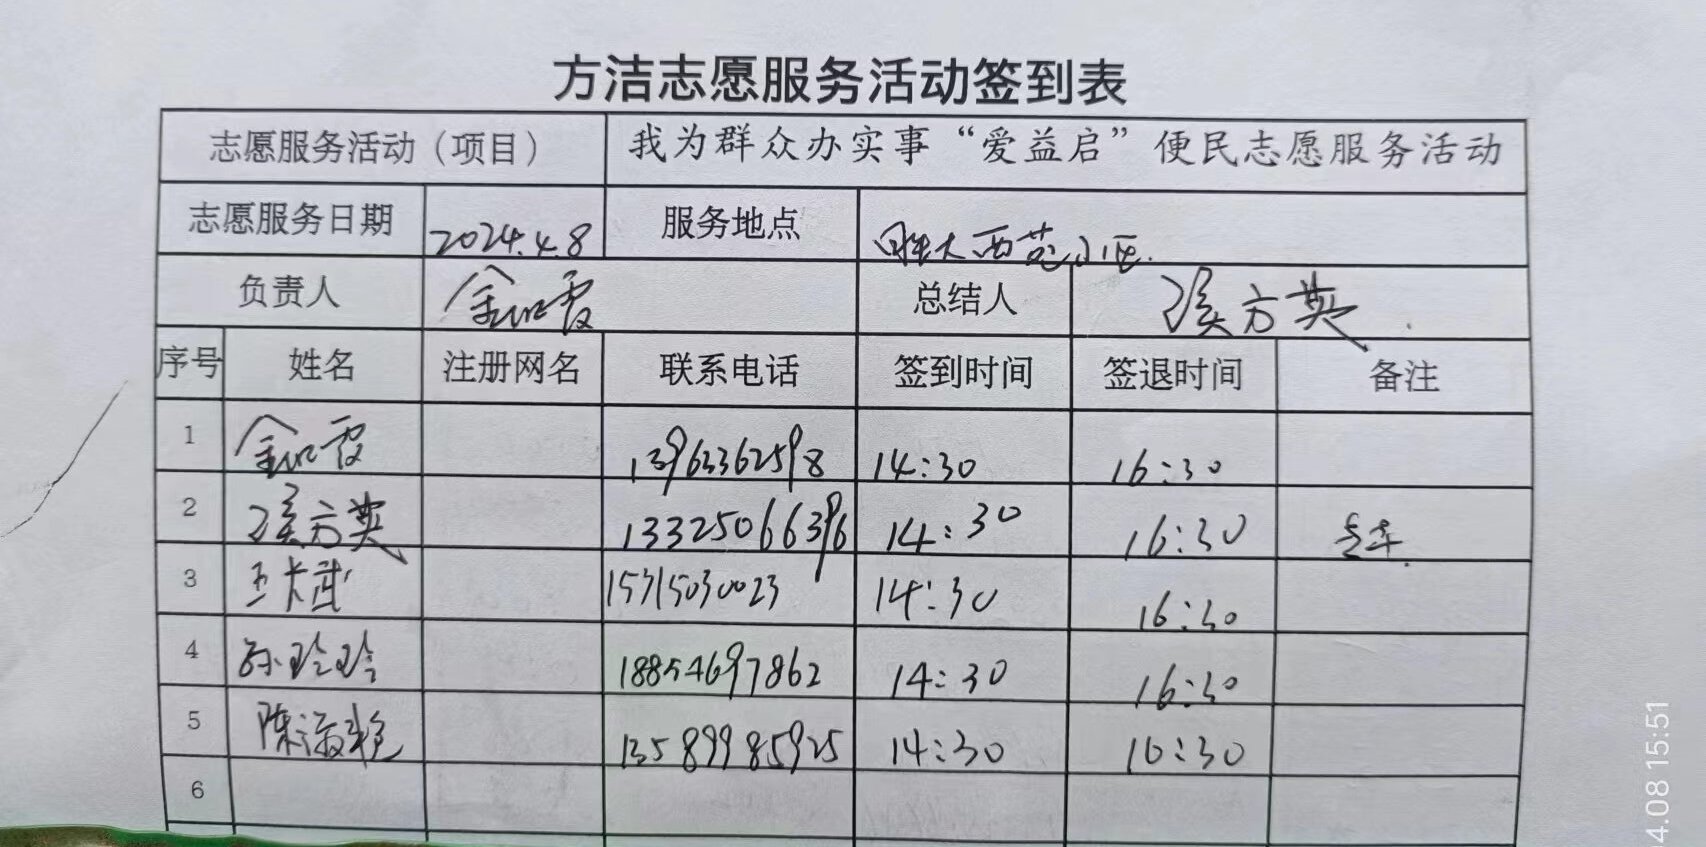 方洁志愿服务活动签到表
志愿服务活动（项目） 我为群众办实事“爱益启”便民志愿服务活动
志愿服务日期 2024.4.8 服务地点 胜大西苑小区.
负责人 金红霞 总结人 侯方英
序号 姓名 注册网名 联系电话 签到时间 签退时间 备注
1 金红霞 13963362598 14:30 16:30
2 侯方英 13325066396 14:30 16:30
3 王大武 15315030023 14:30 16:30
4 孙玲玲 18854697862 14:30 16:30
5 陈淑艳 13589985925 14:30 16:30
6
4.08 15:51